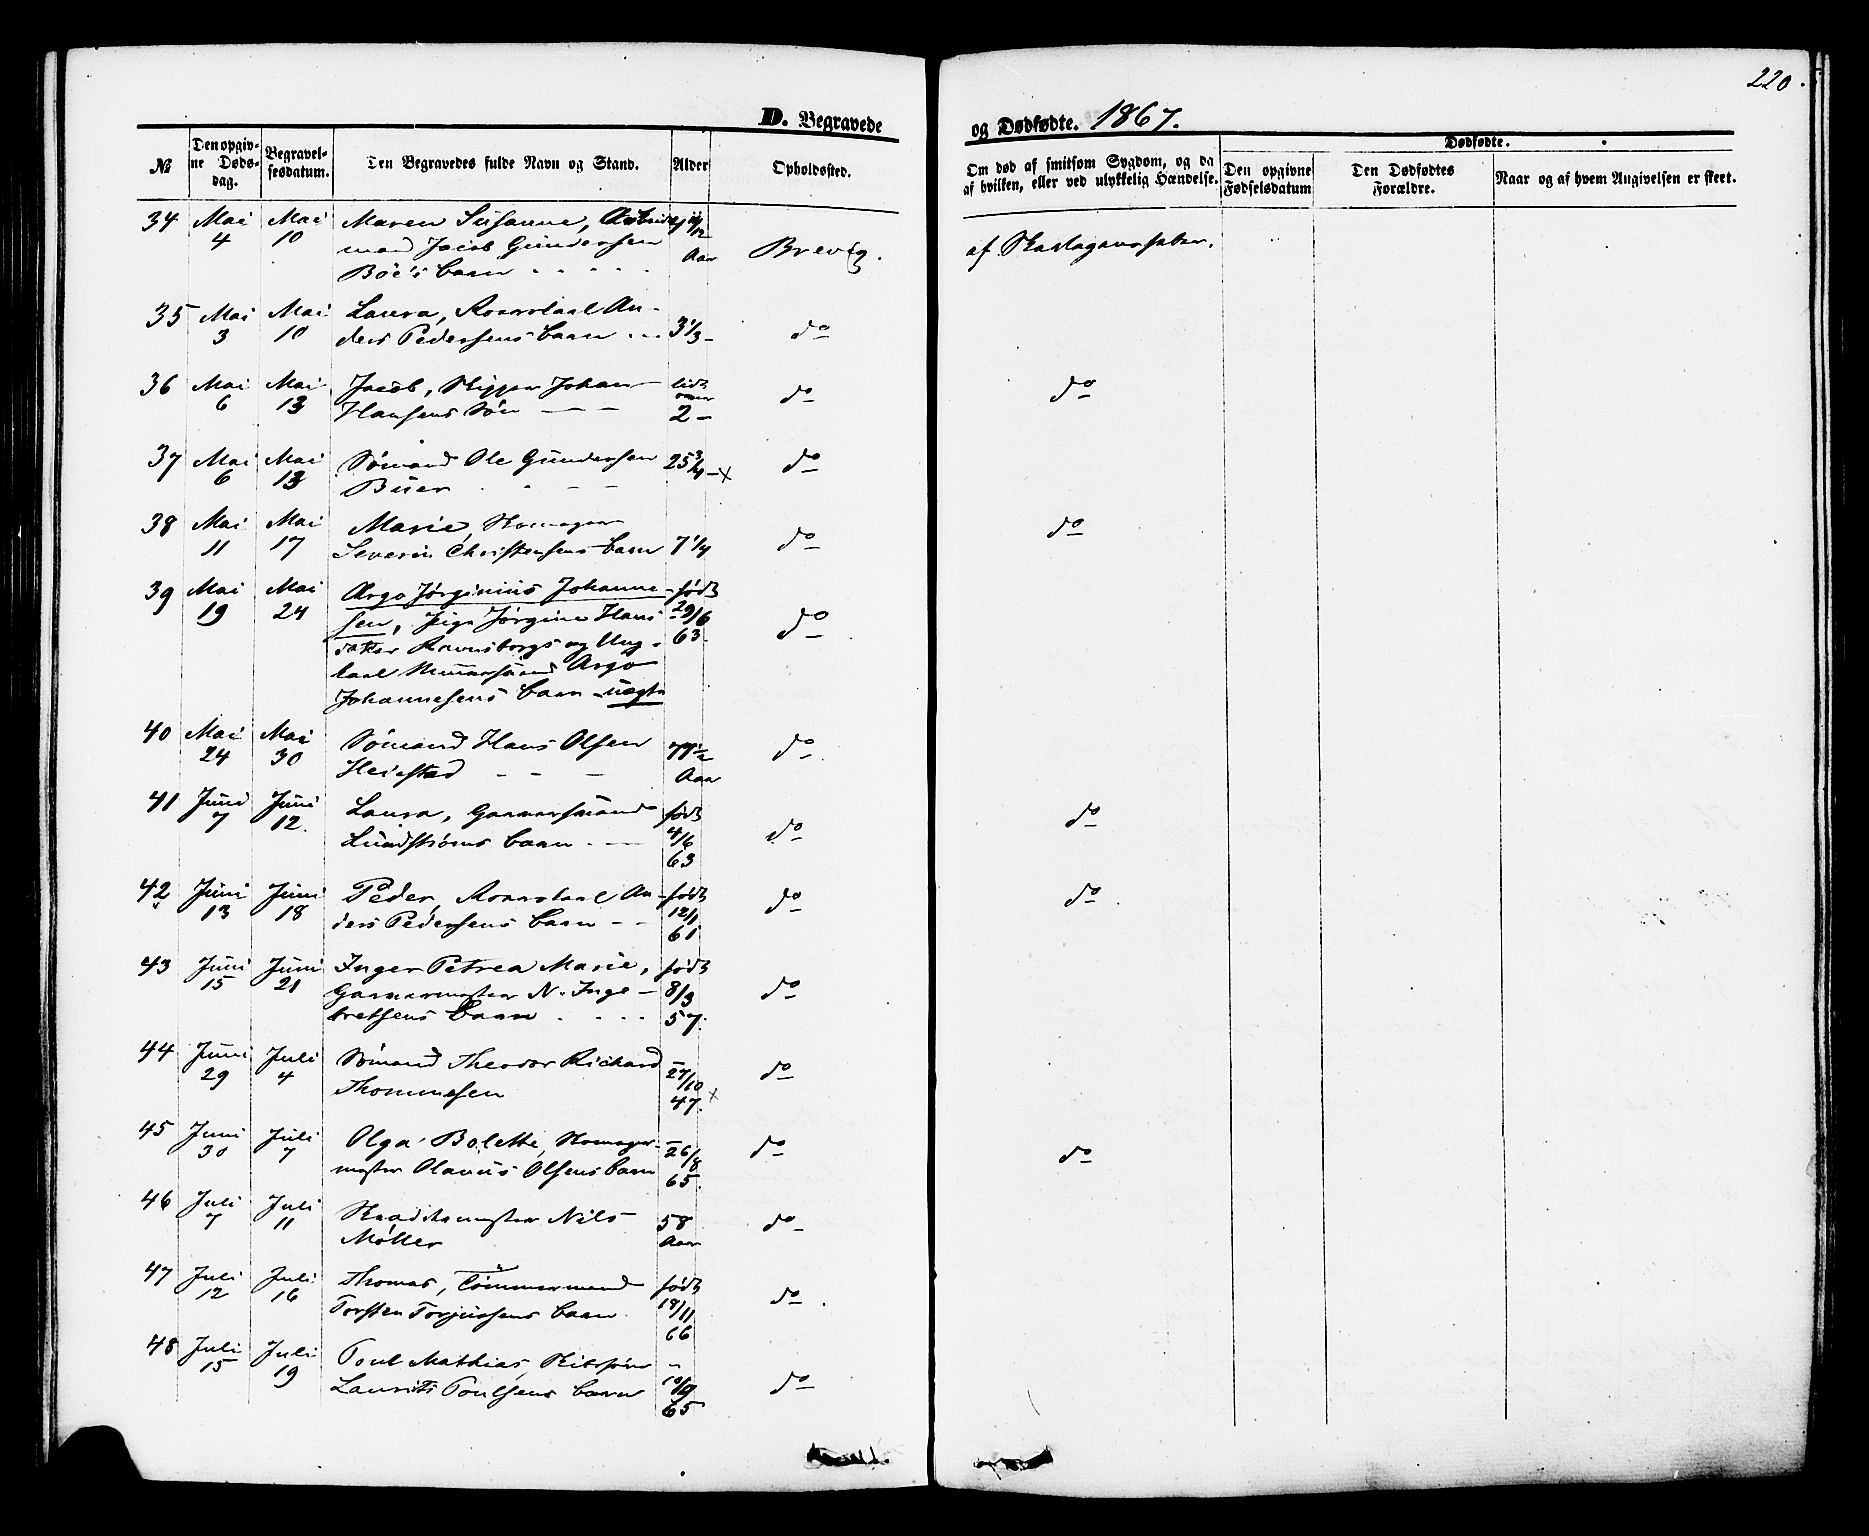 220.
D. Begravede
og Dødfødte. 1867.
№
Den opgiv-
ne Døds-
dag.
Begravel-
sesdatum.
Den Begravedes fulde Navn og Stand.
Alder
Opholdssted.
Om død af smitsom Sygdom, og da
af hvilken, eller ved ulykkelig Hændelse.
Dødfødte.
Den opgivne
Fødselsdatum
Den Dødfødtes
Forældre.
Naar og af hvem Angivelsen er skeet.
34 Mai 4 Mai 10 Maren Susanne,
mand Jacob Gundersen
Böe's barn Aar Brevig. af Skarlagensfeber.
35 Mai 3 Mai 10 Laura, An-
ders Pedersens barn 3 1/3 do
36 Mai 6 Mai 13 Jacob, Skipper Johan
Hansens Søn 2 do do
37 Mai 6 Mai 13 Sømand Ole Gundersen
Buer 25 3/4 x do
38 Mai 11 Mai 17 Marie,
Severin Christensens barn 7 1/4 do do
39 Mai 19 Mai 24 Argo Jørginius Johanne-
sen, Pige Jørgine Hans
datter Ravnsborgs og Ung-
karl Argo
Johannesens barn uægte født 29/6 63. do
40 Mai 24 Mai 30 Sømand Hans Olsen
Heistad 77 1/2 Aar do
41 Juni 7 Juni 12. Laura, Garversvend
Lundstrøms barn født 4/6 63 do do
42 Juni 13 Juni 18 Peder, An-
ders Pedersens barn født 12/1 61 do do
43 Juni 15 Juni 21 Inger Petrea Marie,
Garvermester N. Inge-
bretsens barn født 8/3 57. do
44 Juni 29 Juli 4 Sømand Theodor Richard
Thommesen 27/10 47. x do
45 Juni 30 Juli 7 Olga Bolette, Skomager-
mester Olavus Olsens barn 26/8 65. do do
46 Juli 7 Juli 11 Nils
Møller 58 Aar do
47 Juli 12 Juli 16 Thomas, Tømmermand
Torsten Torjussens barn født 18/11 66 do
48 Juli 15 Juli 19 Poul Mathias,
Laurits Poulsens barn 10/9 65 do